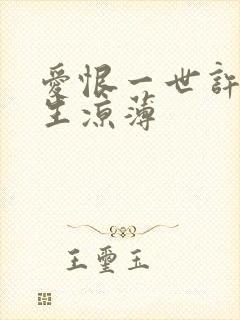 愛恨一世許
生涼薄
王璽玉